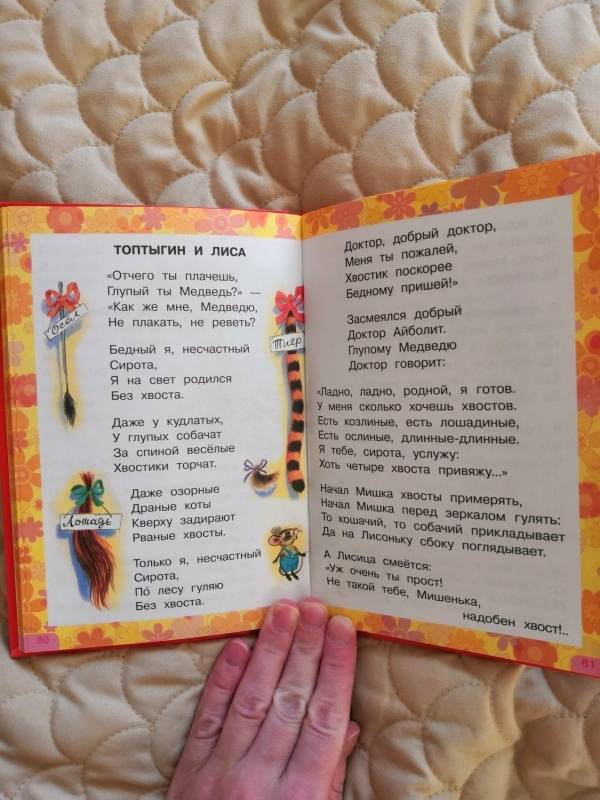 ТОПТЫГИН И ЛИСА
«Отчего ты плачешь,
Глупый ты Медведь?» —
«Как же мне, Медведю,
Не плакать, не реветь?
Бедный я, несчастный
Сирота,
Я на свет родился
Без хвоста.
Даже у кудлатых,
У глупых собачат
За спиной весёлые
Хвостики торчат.
Даже озорные
Драные коты
Кверху задирают
Рваные хвосты.
Только я, несчастный
Сирота,
По́ лесу гуляю
Без хвоста.
Осёл
Тигр
Лошадь
80
Доктор, добрый доктор,
Меня ты пожалей,
Хвостик поскорее
Бедному пришей!»
Засмеялся добрый
Доктор Айболит.
Глупому Медведю
Доктор говорит:
«Ладно, ладно, родной, я готов.
У меня сколько хочешь хвостов.
Есть козлиные, есть лошадиные,
Есть ослиные, длинные-длинные.
Я тебе, сирота, услужу:
Хоть четыре хвоста привяжу...»
Начал Мишка хвосты примерять,
Начал Мишка перед зеркалом гулять:
То кошачий, то собачий прикладывает
Да на Лисоньку сбоку поглядывает.
А Лисица смеётся:
«Уж очень ты прост!
Не такой тебе, Мишенька,
надобен хвост!..
81